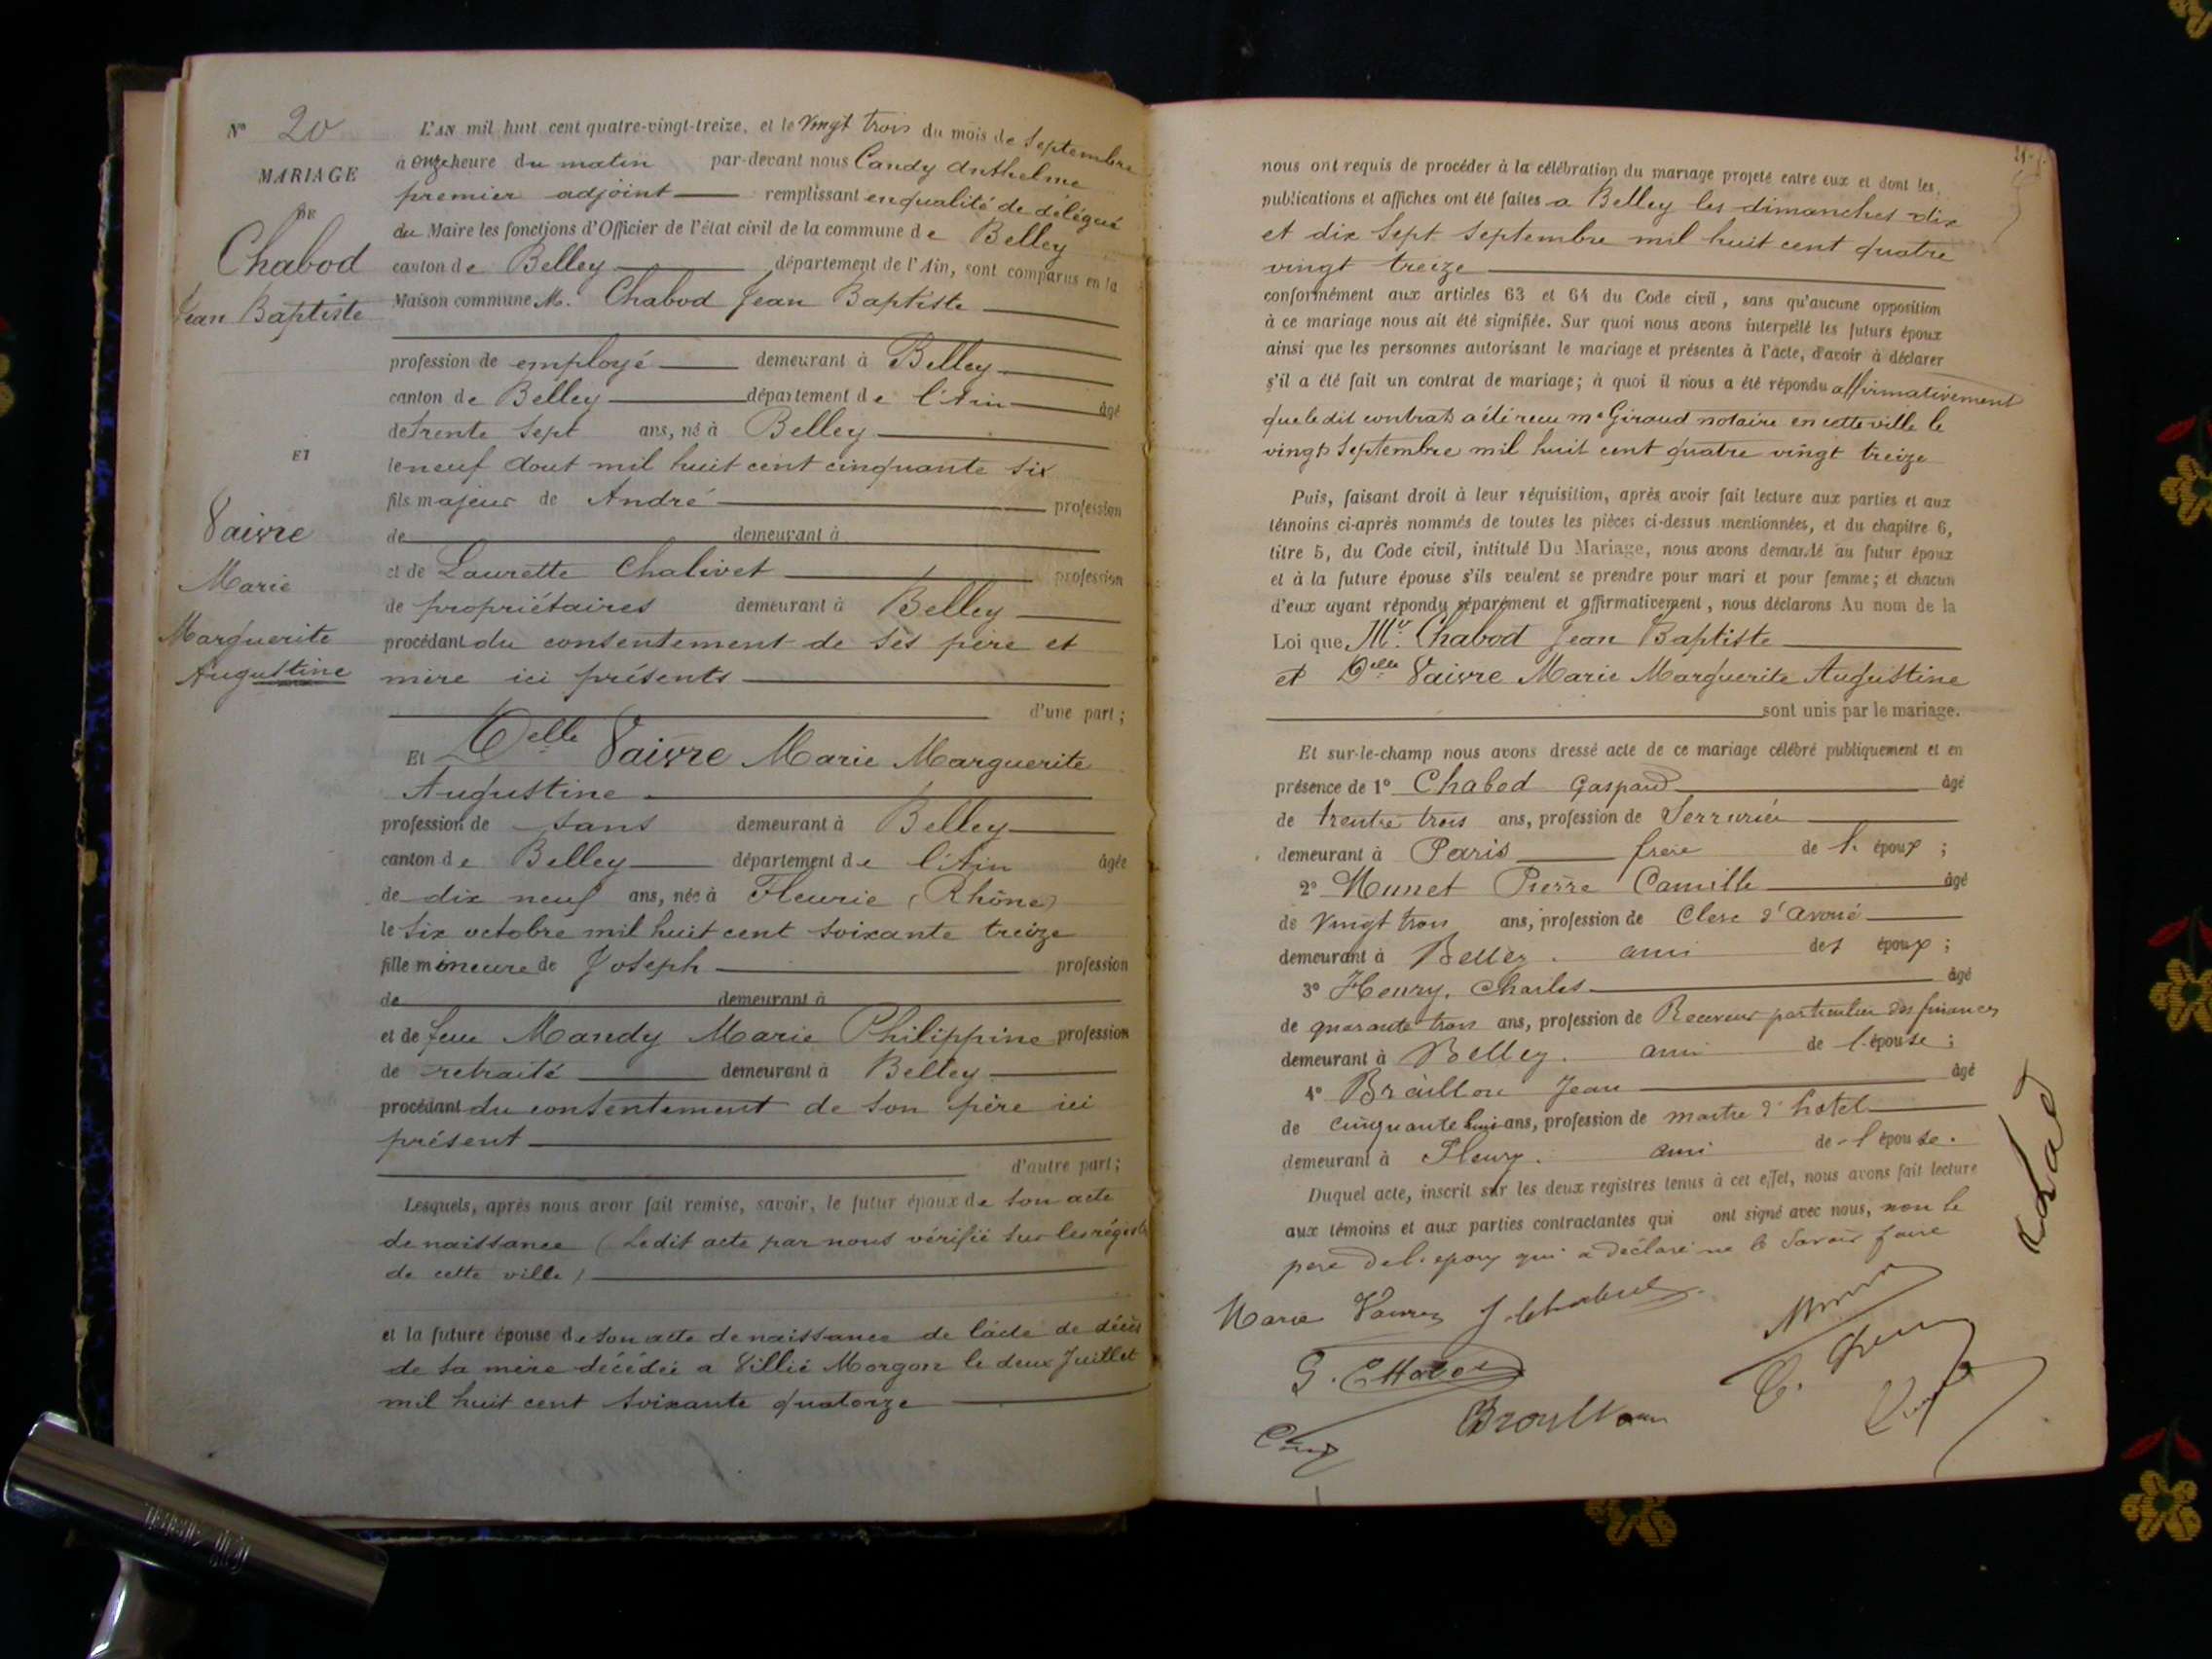 N° 20
MARIAGE
DE
Chabod
Jean Baptiste
ET
Vaivre
Marie
Marguerite
Augustine
L'AN mil huit cent quatre-vingt-treize, et le Vingt trois du mois de Septembre
à onze heure du matin par-devant nous Candy Anthelme
premier adjoint remplissant en qualité de délégué
du Maire les fonctions d'Officier de l'état civil de la commune de Belley
canton de Belley département de l'Ain, sont comparus en la
Maison commune M. Chabod Jean Baptiste
profession de employé demeurant à Belley
canton de Belley département de l'Ain âgé
de trente sept ans, né à Belley
le neuf aout mil huit cent cinquante six
fils majeur de André profession
de demeurant à
et de Laurette Chalivet profession
de propriétaires demeurant à Belley
procédant du consentement de ses père et
mère ici présents
d'une part;
Et Delle Vaivre Marie Marguerite
Augustine
profession de sans demeurant à Belley
canton de Belley département de l'Ain âgée
de dix neuf ans, née à Fleurie (Rhône)
le six octobre mil huit cent soixante treize
fille mineure de Joseph profession
de demeurant à
et de feue Mandy Marie Philippine profession
de retraité demeurant à Belley
procédant du consentement de son père ici
présent
d'autre part;
Lesquels, après nous avoir fait remise, savoir, le futur époux de son acte
de naissance (Ledit acte par nous vérifié sur les régistres
de cette ville)
et la future épouse de son acte de naissance de l'acte de décès
de sa mère décédée a Villié Morgon le deux Juillet
mil huit cent soixante quatorze
nous ont requis de procéder à la célébration du mariage projeté entre eux et dont les
publications et affiches ont été faites a Belley les dimanches dix
et dix sept Septembre mil huit cent quatre
vingt treize
conformément aux articles 63 et 64 du Code civil, sans qu'aucune opposition
à ce mariage nous ait été signifiée. Sur quoi nous avons interpellé les futurs époux
ainsi que les personnes autorisant le mariage et présentes à l'acte, d'avoir à déclarer
s'il a été fait un contrat de mariage; à quoi il nous a été répondu affirmativement
que le dit contrat a été recu me Giraud notaire en cette ville le
vingt Septembre mil huit cent quatre vingt treize
Puis, faisant droit à leur réquisition, après avoir fait lecture aux parties et aux
témoins ci-après nommés de toutes les pièces ci-dessus mentionnées, et du chapitre 6,
titre 5, du Code civil, intitulé Du Mariage, nous avons demandé au futur époux
et à la future épouse s'ils veulent se prendre pour mari et pour femme; et chacun
d'eux ayant répondu séparément et affirmativement, nous déclarons Au nom de la
Loi que Mr. Chabod Jean Baptiste
et Delle Vaivre Marie Marguerite Augustine
sont unis par le mariage.
Et sur-le-champ nous avons dressé acte de ce mariage célébré publiquement et en
présence de 1° Chabod Gaspard âgé
de trente trois ans, profession de Serrurier
demeurant à Paris frère de l' époux ;
2° Munet Pierre Camille âgé
de Vingt trois ans, profession de Clerc d'avoué
demeurant à Belley. ami des époux ;
3° Henry, Charles âgé
de quarante trois ans, profession de Receveur particulier des finances
demeurant à Belley. ami de l'épouse ;
4° Braillon Jean âgé
de cinquante huit ans, profession de maitre d'hotel
demeurant à Fleury. ami de l'épouse.
Duquel acte, inscrit sur les deux registres tenus à cet effet, nous avons fait lecture
aux témoins et aux parties contractantes qui ont signé avec nous, non le
père de l'époux qui a déclaré ne le savoir faire
Marie Vaivre J. Chabod
G. Chabod
Braillon